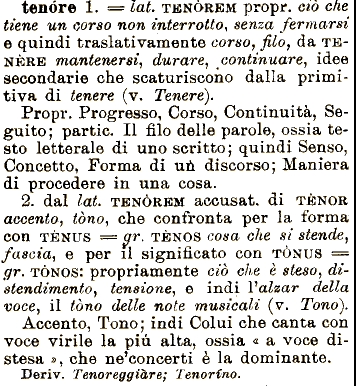 tenóre 1. = lat. TENÒREM propr. ciò che
tiene un corso non interrotto, senza fermarsi
e quindi traslativamente corso, filo, da TE-
NÈRE mantenersi, durare, continuare, idee
secondarie che scaturiscono dalla primi-
tiva di tenere (v. Tenere).
Propr. Progresso, Corso, Continuità, Se-
guito; partic. Il filo delle parole, ossia te-
sto letterale di uno scritto; quindi Senso,
Concetto, Forma di un discorso; Maniera
di procedere in una cosa.
2. dal lat. TENÒREM accusat. di TÈNOR
accento, tòno, che confronta per la forma
con TÈNUS = gr. TÈNOS cosa che si stende,
fascia, e per il significato con TÒNUS =
gr. TÒNOS: propriamente ciò che è steso, di-
stendimento, tensione, e indi l'alzar della
voce, il tòno delle note musicali (v. Tono).
Accento, Tono; indi Colui che canta con
voce virile la piú alta, ossia « a voce di-
stesa », che ne'concerti è la dominante.
Deriv. Tenoreggiàre; Tenorino.